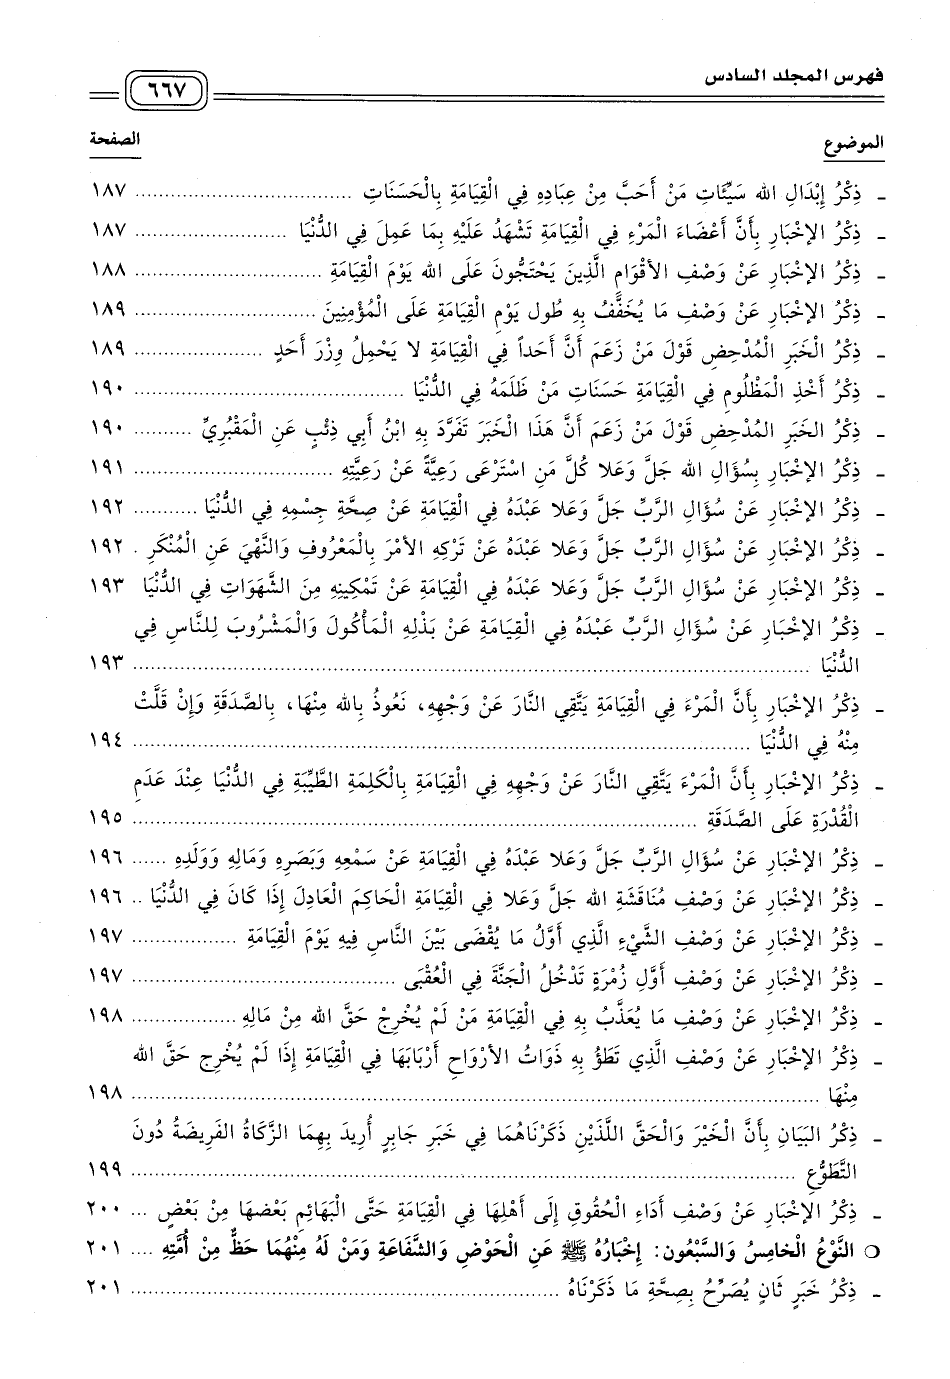 فهرس المجلد السادس
٦٦٧
الموضوع الصفحة
- ذِكْرُ إِبْدَالِ الله سَيِّئَاتِ مَنْ أَحَبَّ مِنْ عِبَادِهِ فِي الْقِيَامَةِ بِالْحَسَنَاتِ ........ ١٨٧
- ذِكْرُ الإخْبَارِ بِأَنَّ أَعْضَاءَ الْمَرْءِ فِي الْقِيَامَةِ تَشْهَدُ عَلَيْهِ بِمَا عَمِلَ فِي الدُّنْيَا ........ ١٨٧
- ذِكْرُ الإخْبَارِ عَنْ وَصْفِ الأقْوَامِ الَّذِينَ يَحْتَجُّونَ عَلَى الله يَوْمَ الْقِيَامَةِ ........ ١٨٨
- ذِكْرُ الإخْبَارِ عَنْ وَصْفِ مَا يُخَفَّفُ بِهِ طُول يَوْمِ الْقِيَامَةِ عَلَى الْمُؤْمِنِينَ ........ ١٨٩
- ذِكْرُ الْخَبَرِ الْمُدْحِضِ قَوْلَ مَنْ زَعَمَ أَنَّ أَحَداً فِي الْقِيَامَةِ لا يَحْمِلُ وِزْرَ أَحَدٍ ........ ١٨٩
- ذِكْرُ أَخْذِ الْمَظْلُومِ فِي الْقِيَامَةِ حَسَنَاتِ مَنْ ظَلَمَهُ فِي الدُّنْيَا ........ ١٩٠
- ذِكْرُ الخَبَرِ المُدْحِضِ قَوْلَ مَنْ زَعَمَ أَنَّ هَذَا الْخَبَرَ تَفَرَّدَ بِهِ ابْنُ أَبِي ذِئْبٍ عَنِ الْمَقْبُرِيِّ ........ ١٩٠
- ذِكْرُ الإخْبَارِ بِسُؤَالِ الله جَلَّ وَعَلا كُلَّ مَنِ اسْتَرْعَى رَعِيَّةً عَنْ رَعِيَّتِهِ ........ ١٩١
- ذِكْرُ الإخْبَارِ عَنْ سُؤَالِ الرَّبِّ جَلَّ وَعَلا عَبْدَهُ فِي الْقِيَامَةِ عَنْ صِحَّةِ جِسْمِهِ فِي الدُّنْيَا ........ ١٩٢
- ذِكْرُ الإخْبَارِ عَنْ سُؤَالِ الرَّبِّ جَلَّ وَعَلا عَبْدَهُ عَنْ تَرْكِهِ الأمْرَ بِالْمَعْرُوفِ وَالنَّهْيَ عَنِ الْمُنْكَرِ . ١٩٢
- ذِكْرُ الإخْبَارِ عَنْ سُؤَالِ الرَّبِّ جَلَّ وَعَلا عَبْدَهُ فِي الْقِيَامَةِ عَنْ تَمْكِينِهِ مِنَ الشَّهَوَاتِ فِي الدُّنْيَا ١٩٣
- ذِكْرُ الإخْبَارِ عَنْ سُؤَالِ الرَّبِّ عَبْدَهُ فِي الْقِيَامَةِ عَنْ بَذْلِهِ الْمَأْكُولَ وَالْمَشْرُوبَ لِلنَّاسِ فِي
الدُّنْيَا ........ ١٩٣
- ذِكْرُ الإخْبَارِ بِأَنَّ الْمَرْءَ فِي الْقِيَامَةِ يَتَّقِي النَّارَ عَنْ وَجْهِهِ، نَعُوذُ بِالله مِنْهَا، بِالصَّدَقَةِ وَإِنْ قَلَّتْ
مِنْهُ فِي الدُّنْيَا ........ ١٩٤
- ذِكْرُ الإخْبَارِ بِأَنَّ الْمَرْءَ يَتَّقِي النَّارَ عَنْ وَجْهِهِ فِي الْقِيَامَةِ بِالْكَلِمَةِ الطَّيِّبَةِ فِي الدُّنْيَا عِنْدَ عَدَمِ
الْقُدْرَةِ عَلَى الصَّدَقَةِ ........ ١٩٥
- ذِكْرُ الإخْبَارِ عَنْ سُؤَالِ الرَّبِّ جَلَّ وَعَلا عَبْدَهُ فِي الْقِيَامَةِ عَنْ سَمْعِهِ وَبَصَرِهِ وَمَالِهِ وَوَلَدِهِ ...... ١٩٦
- ذِكْرُ الإخْبَارِ عَنْ وَصْفِ مُنَاقَشَةِ الله جَلَّ وَعَلا فِي الْقِيَامَةِ الْحَاكِمَ الْعَادِلَ إِذَا كَانَ فِي الدُّنْيَا .. ١٩٦
- ذِكْرُ الإخْبَارِ عَنْ وَصْفِ الشَّيْءِ الَّذِي أَوَّلُ مَا يُقْضَى بَيْنَ النَّاسِ فِيهِ يَوْمَ الْقِيَامَةِ ........ ١٩٧
- ذِكْرُ الإخْبَارِ عَنْ وَصْفِ أَوَّلِ زُمْرَةٍ تَدْخُلُ الْجَنَّةَ فِي الْعُقْبَى ........ ١٩٧
- ذِكْرُ الإخْبَارِ عَنْ وَصْفِ مَا يُعَذَّبُ بِهِ فِي الْقِيَامَةِ مَنْ لَمْ يُخْرِجْ حَقَّ الله مِنْ مَالِهِ ........ ١٩٨
- ذِكْرُ الإخْبَارِ عَنْ وَصْفِ الَّذِي تَطَؤُ بِهِ ذَوَاتُ الأرْوَاحِ أَرْبَابَهَا فِي الْقِيَامَةِ إِذَا لَمْ يُخْرِجِ حَقَّ الله
مِنْهَا ........ ١٩٨
- ذِكْرُ البَيَانِ بِأَنَّ الْخَيْرَ وَالْحَقَّ اللَّذَيْنِ ذَكَرْنَاهُمَا فِي خَبَرِ جَابِرٍ أُرِيدَ بِهِمَا الزَّكَاةُ الفَرِيضَةُ دُونَ
التَّطَوُّعِ ........ ١٩٩
- ذِكْرُ الإخْبَارِ عَنْ وَصْفِ أَدَاءِ الْحُقُوقِ إِلَى أَهْلِهَا فِي الْقِيَامَةِ حَتَّى الْبَهَائِمِ بَعْضهَا مِنْ بَعْضٍ ... ٢٠٠
○ النَّوْعُ الْخامِسُ وَالسَّبْعُون: إخْبَارُهُ ﷺ عَنِ الْحَوْضِ وَالشَّفَاعَةِ وَمَنْ لَهُ مِنْهُمَا حَظٌّ مِنْ أُمَّتِهِ .... ٢٠١
- ذِكْرُ خَبَرٍ ثَانٍ يُصَرِّحُ بِصِحَّةِ مَا ذَكَرْنَاهُ ........ ٢٠١